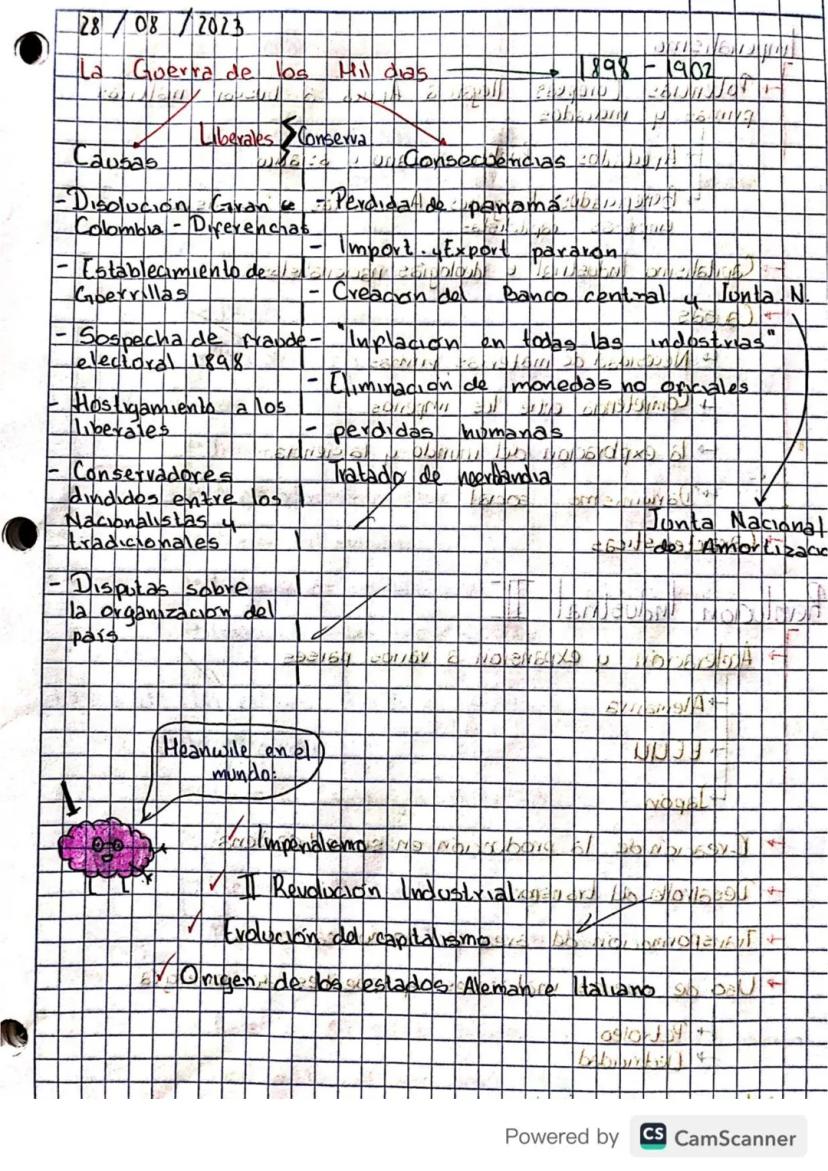 28 / 08 / 2023
La Guerra de los Mil dias → 1898 - 1902
Liberales Conserva
Causas
- Disolución Gran
Colombia - Diferencias
- Establecimiento de
Guerrillas
- Sospecha de fraude
electoral 1898
- Hostigamiento a los
liberales
- Conservadores
divididos entre los
Nacionalistas y
tradicionales
- Disputas sobre
la organización del
país
Consecuencias
- Perdida de panamá
- Import. y Export pararon
- Creación del Banco central y Junta. N.
- "Inflación en todas las industrias"
- Eliminación de monedas no oficiales
- perdidas humanas
Tratado de neerlandia
Junta Nacional
de Amortizac
Meanwile en el
mundo:
✓ Imperialismo
✓ II Revolución Industrial
✓ Evolución del capitalismo
✓ Origen de los estados Aleman e Italiano
Powered by CS CamScanner